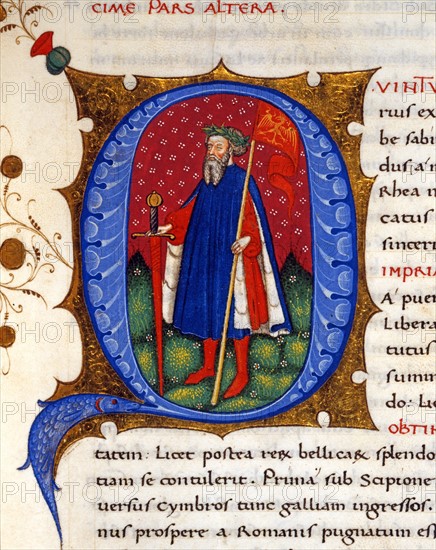 CIME PARS ALTERA.
VINTV
rius ex
be sabi
dus: a
Rhea
catus
sincer
IMPRI
A puer
Libera
tutus
summ
do: Li
OBTIN
tatem: Licet postea reꝝ bellicaꝝ splendo
tiam se contulerit. Prima sub Scipione
versus Cymbros tunc galliam ingressos.
nus prospere a Romanis pugnatum es